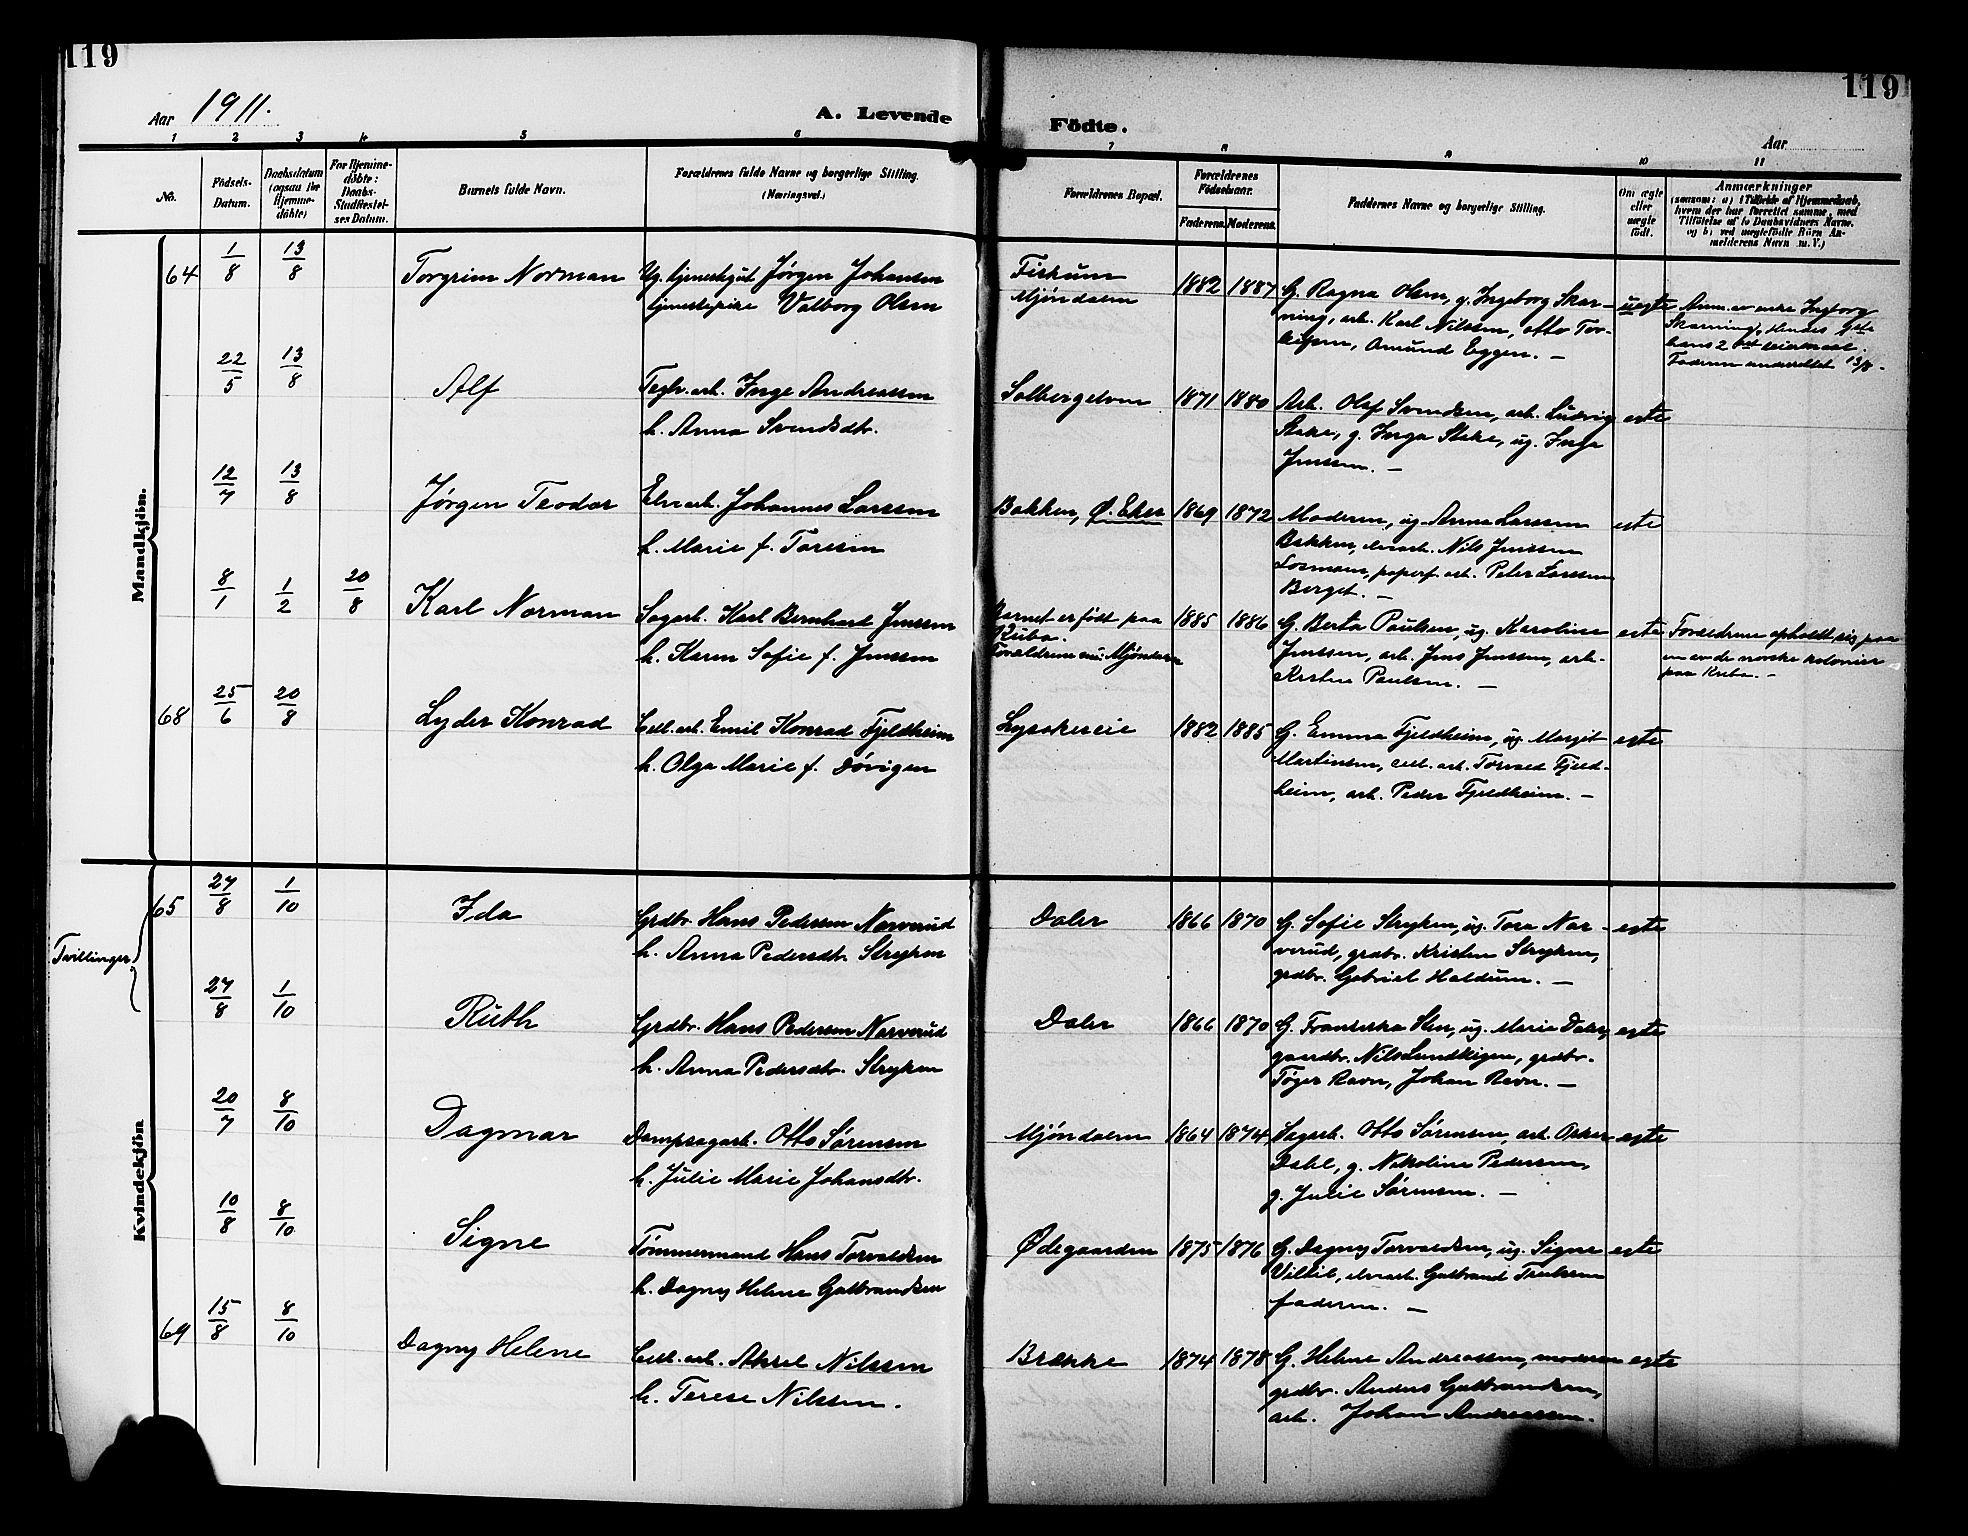 119
119
Aar 1911.
A. Levende
Födte.
Aar
1 2 3 4 5 6 7 8 9 10 11
No.
Födsels-Datum.
Daabsdatum (ogsaa for Hjemme-döbte)
For Hjemme-döbte: Daabs-Stadfæstelses Datum.
Barnets fulde Navn.
Forældrenes fulde Navne og borgerlige Stilling. (Næringsvei.)
Forældrenes Bopæl.
Forældrenes Födselsaar.
Faderens. Moderens.
Faddernes Navne og borgerlige Stilling.
Om ægte eller uægte födt.
Anmærkninger
(saasom: a) i Tilfælde af Hjemmedaab, hvem der har forrettet samme, med Tilföielse af to Daabsvidners Navne, og b) ved uægtefödte Börn Anmelderens Navn m. V.)
Mandkjön.
64 1/8 13/8 Torgrim Norman
Ug. tjenestegut Jørgen Johansen
tjenestepike Valborg Olsen
Fiskum
Mjøndalen
1882 1887
G. Ragna Olsen, g. Ingeborg Skar-
ning, arb. Karl Nilssen, Otto Tor-
Omund Eggen. —
uegte
Ingeborg
Skarning, Hendes 1ste
hans 2det leiermaal.
Faderen underrettet 13/8.
22/5 13/8 Alf
Teglv.arb. Inge Andreassen
h. Anna Svendsdtr.
Solbergelven
1871 1880
Arb. Olaf Svendsen, arb. Ludvig
Stake, g. Inga Stake, ug. Inga
Jenssen. —
egte
12/7 13/8 Jørgen Teodor
Elvearb. Johannes Larssen
h. Marie f. Toresen
Bakken, Ø. Eker
1869 1872
Moderen, ug. Anna Larssen
Bakken, elvearb. Nils Jenssen
Losmoen, papirf. arb. Peter Larssen
Berget. —
egte
8/1 1/2 20/8 Karl Norman
Sagarb. Karl Bernhard Jenssen
h. Karen Sofie f. Jenssen
Barnet er født paa
Kuba.
Forældrene nu: Mjøndalen
1885 1886
G. Berta Paulsen, ug. Karoline
Jenssen, arb. Jens Jenssen, arb.
Kristen Paulsen. —
egte
Forældrene opholdt sig paa
en av de norske kolonier
paa Kuba. —
68 25/6 20/8 Lyder Konrad
Cell.arb. Emil Konrad Fjeldheim
h. Olga Marie f. Døvigen
Lysakereie
1882 1885
G. Emma Fjeldheim, ug. Margit
Martinsen, cell. arb. Torvald Fjeld-
heim, arb. Peder Fjeldheim. —
egte
Kvindekjön
Tvillinger
65 27/8 1/10 Ida
Grdbr. Hans Pedersen Narverud
h. Anna Pedersdtr. Stryken
Daler
1866 1870
G. Sofie Stryken, ug. Tora Nar-
verud, grdbr. Kristen Stryken,
grdbr. Gabriel Haldum. —
egte
27/8 1/10 Ruth
Grdbr. Hans Pedersen Narverud
h. Anna Pedersdtr. Stryken
Daler
1866 1870
G. Franciska Sten, ug. Marie Daler,
gaardbr. Nils Lundteigen, grdbr.
Tøger Ravn, Johan Ravn. —
egte
20/7 8/10 Dagmar
Dampsagarb. Otto Sørensen
h. Julie Marie Johansdtr.
Mjøndalen
1864 1874
Sagarb. Otto Sørensen, arb. Oskar
Dahl, g. Nikoline Pedersen,
g. Julie Sørensen. —
egte
10/8 8/10 Signe
Tømmermand Hans Torvaldsen
h. Dagny Helene Gulbrandsen
Ødegaarden
1875 1876
G. Dagny Torvaldsen, ug. Signe
Villil, elvearb. Gulbrand Trulssen
faderen. —
egte
69 15/8 8/10 Dagny Helene
Cell.arb. Aksel Nilssen
h. Terese Nilssen.
Brække
1874 1878
G. Helene Andreassen, moderen
grdbr. Anders Gulbrandsen,
arb. Johan Andreassen.
egte